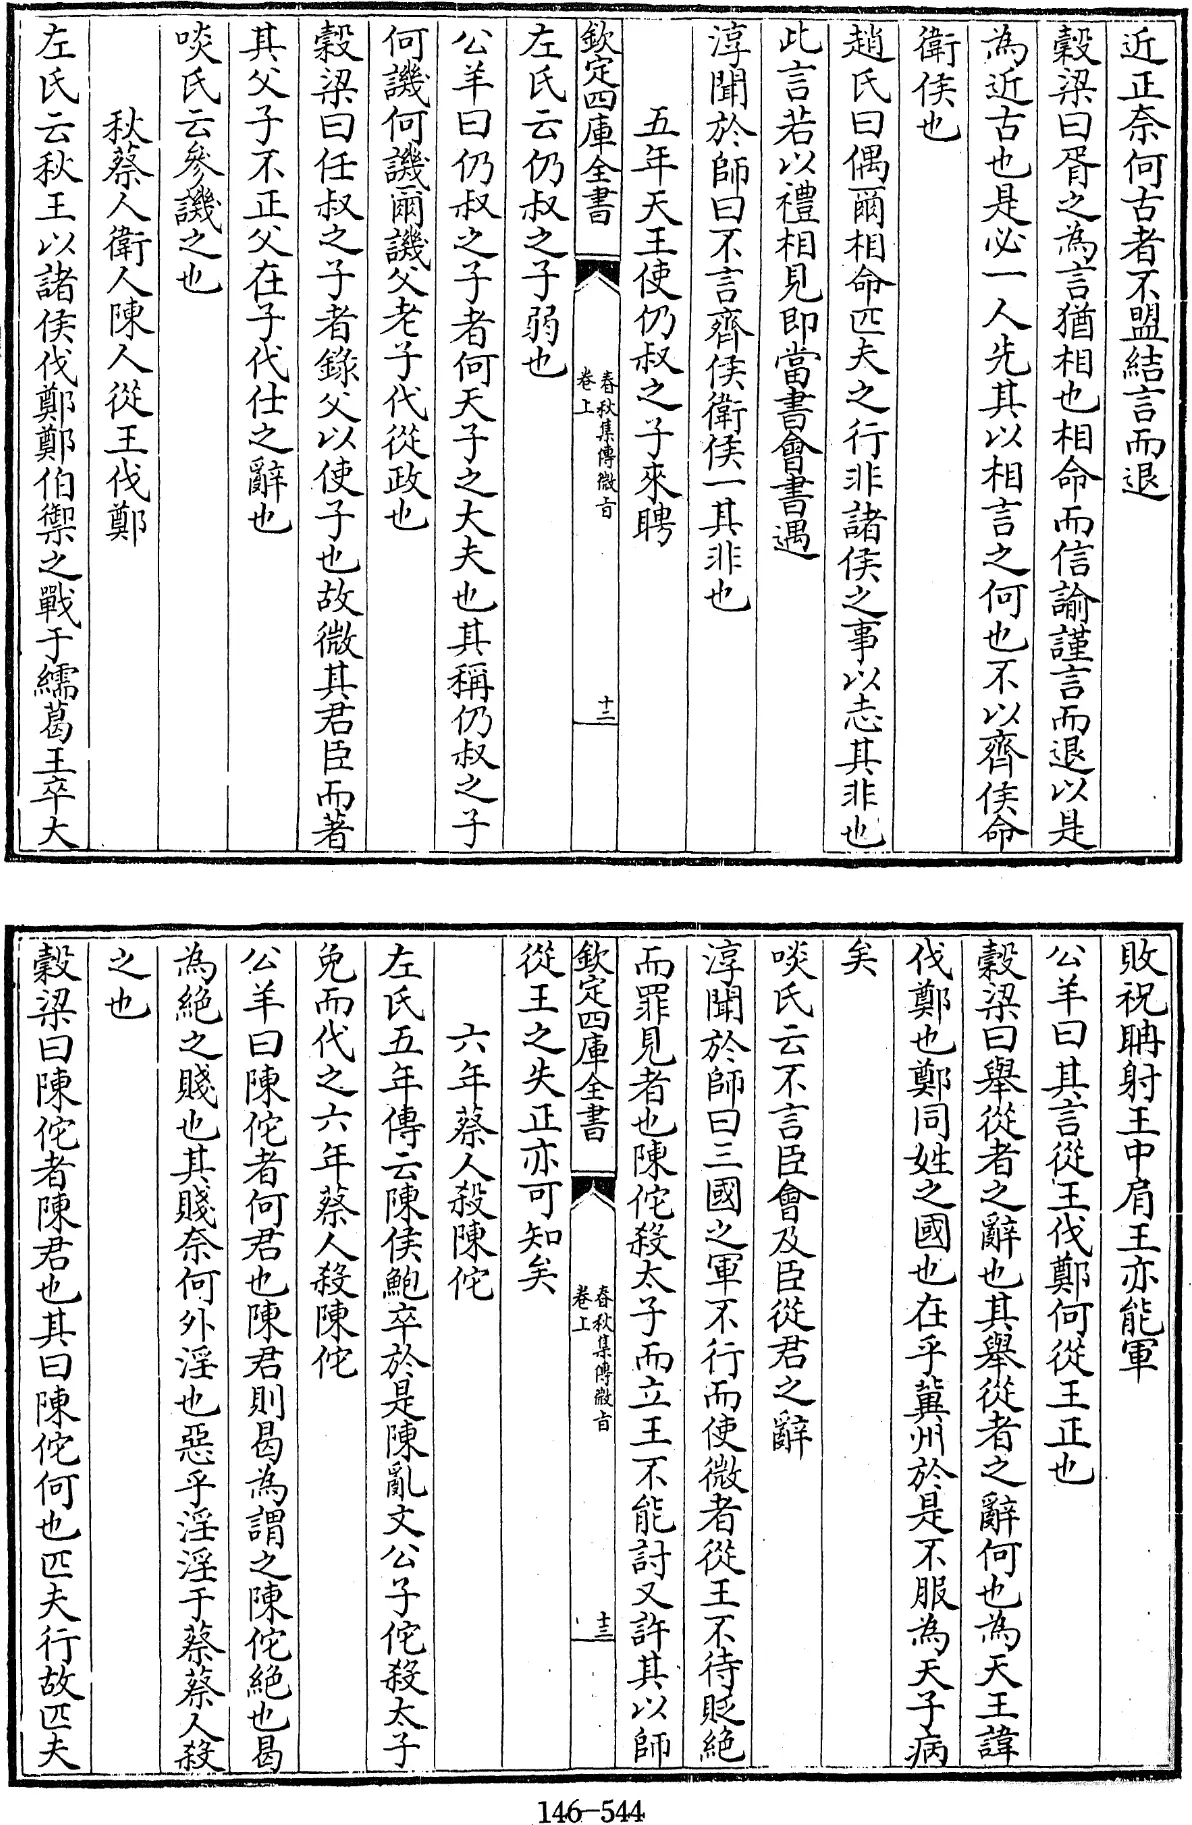 近正奈何古者不盟結言而退
穀梁曰胥之為言猶相也相命而信諭謹言而退以是
為近古也是必一人先其以相言之何也不以齊侯命
衛侯也
趙氏曰偶爾相命匹夫之行非諸侯之事以志其非也
此言若以禮相見即當書會書遇
淳聞於師曰不言齊侯衛侯一其非也
五年天王使仍叔之子來聘
欽定四庫全書
春秋集傳微旨
卷上
十二
左氏云仍叔之子弱也
公羊曰仍叔之子者何天子之大夫也其稱仍叔之子
何譏何譏爾譏父老子代從政也
穀梁曰任叔之子者錄父以使子也故微其君臣而著
其父子不正父在子代仕之辭也
啖氏云參譏之也
秋蔡人衛人陳人從王伐鄭
左氏云秋王以諸侯伐鄭鄭伯禦之戰于繻葛王卒大
敗祝聃射王中肩王亦能軍
公羊曰其言從王伐鄭何從王正也
穀梁曰舉從者之辭也其舉從者之辭何也為天王諱
伐鄭也鄭同姓之國也在乎冀州於是不服為天子病
矣
啖氏云不言臣會及臣從君之辭
淳聞於師曰三國之軍不行而使微者從王不待貶絕
而罪見者也陳佗殺太子而立王不能討又許其以師
欽定四庫全書
春秋集傳微旨
卷上
十三
從王之失正亦可知矣
六年蔡人殺陳佗
左氏五年傳云陳侯鮑卒於是陳亂文公子佗殺太子
免而代之六年蔡人殺陳佗
公羊曰陳佗者何君也陳君則曷為謂之陳佗絕也曷
為絕之賤也其賤奈何外淫也惡乎淫淫于蔡蔡人殺
之也
穀梁曰陳佗者陳君也其曰陳佗何也匹夫行故匹夫
146-544